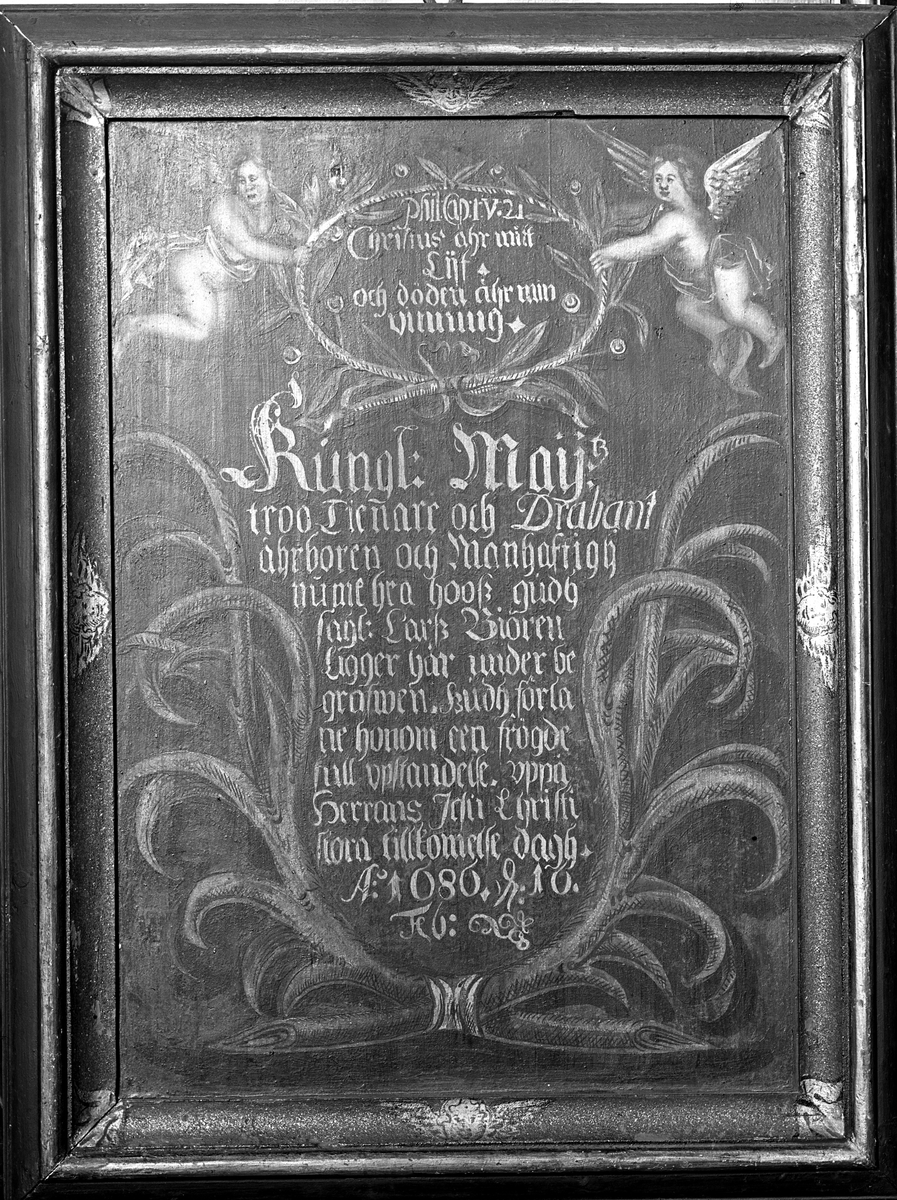 Phil: Cap: 1 V: 21
Christus ahr mitt
Lijf
och döden ähr min
vinning
Kungl: Maÿ:tz
troo Tienare och Drabant
ahrboren och Manhaftigh
nümehra hooß gudh
sagl: Larß Biören
ligger här under be
grafwen. Gudh förla
ne honom een frögde
full vpstandelse. vppå
Herrans Jesu Christi
stora tillkomelse dagh
A:o 1686. d: 16.
Feb: